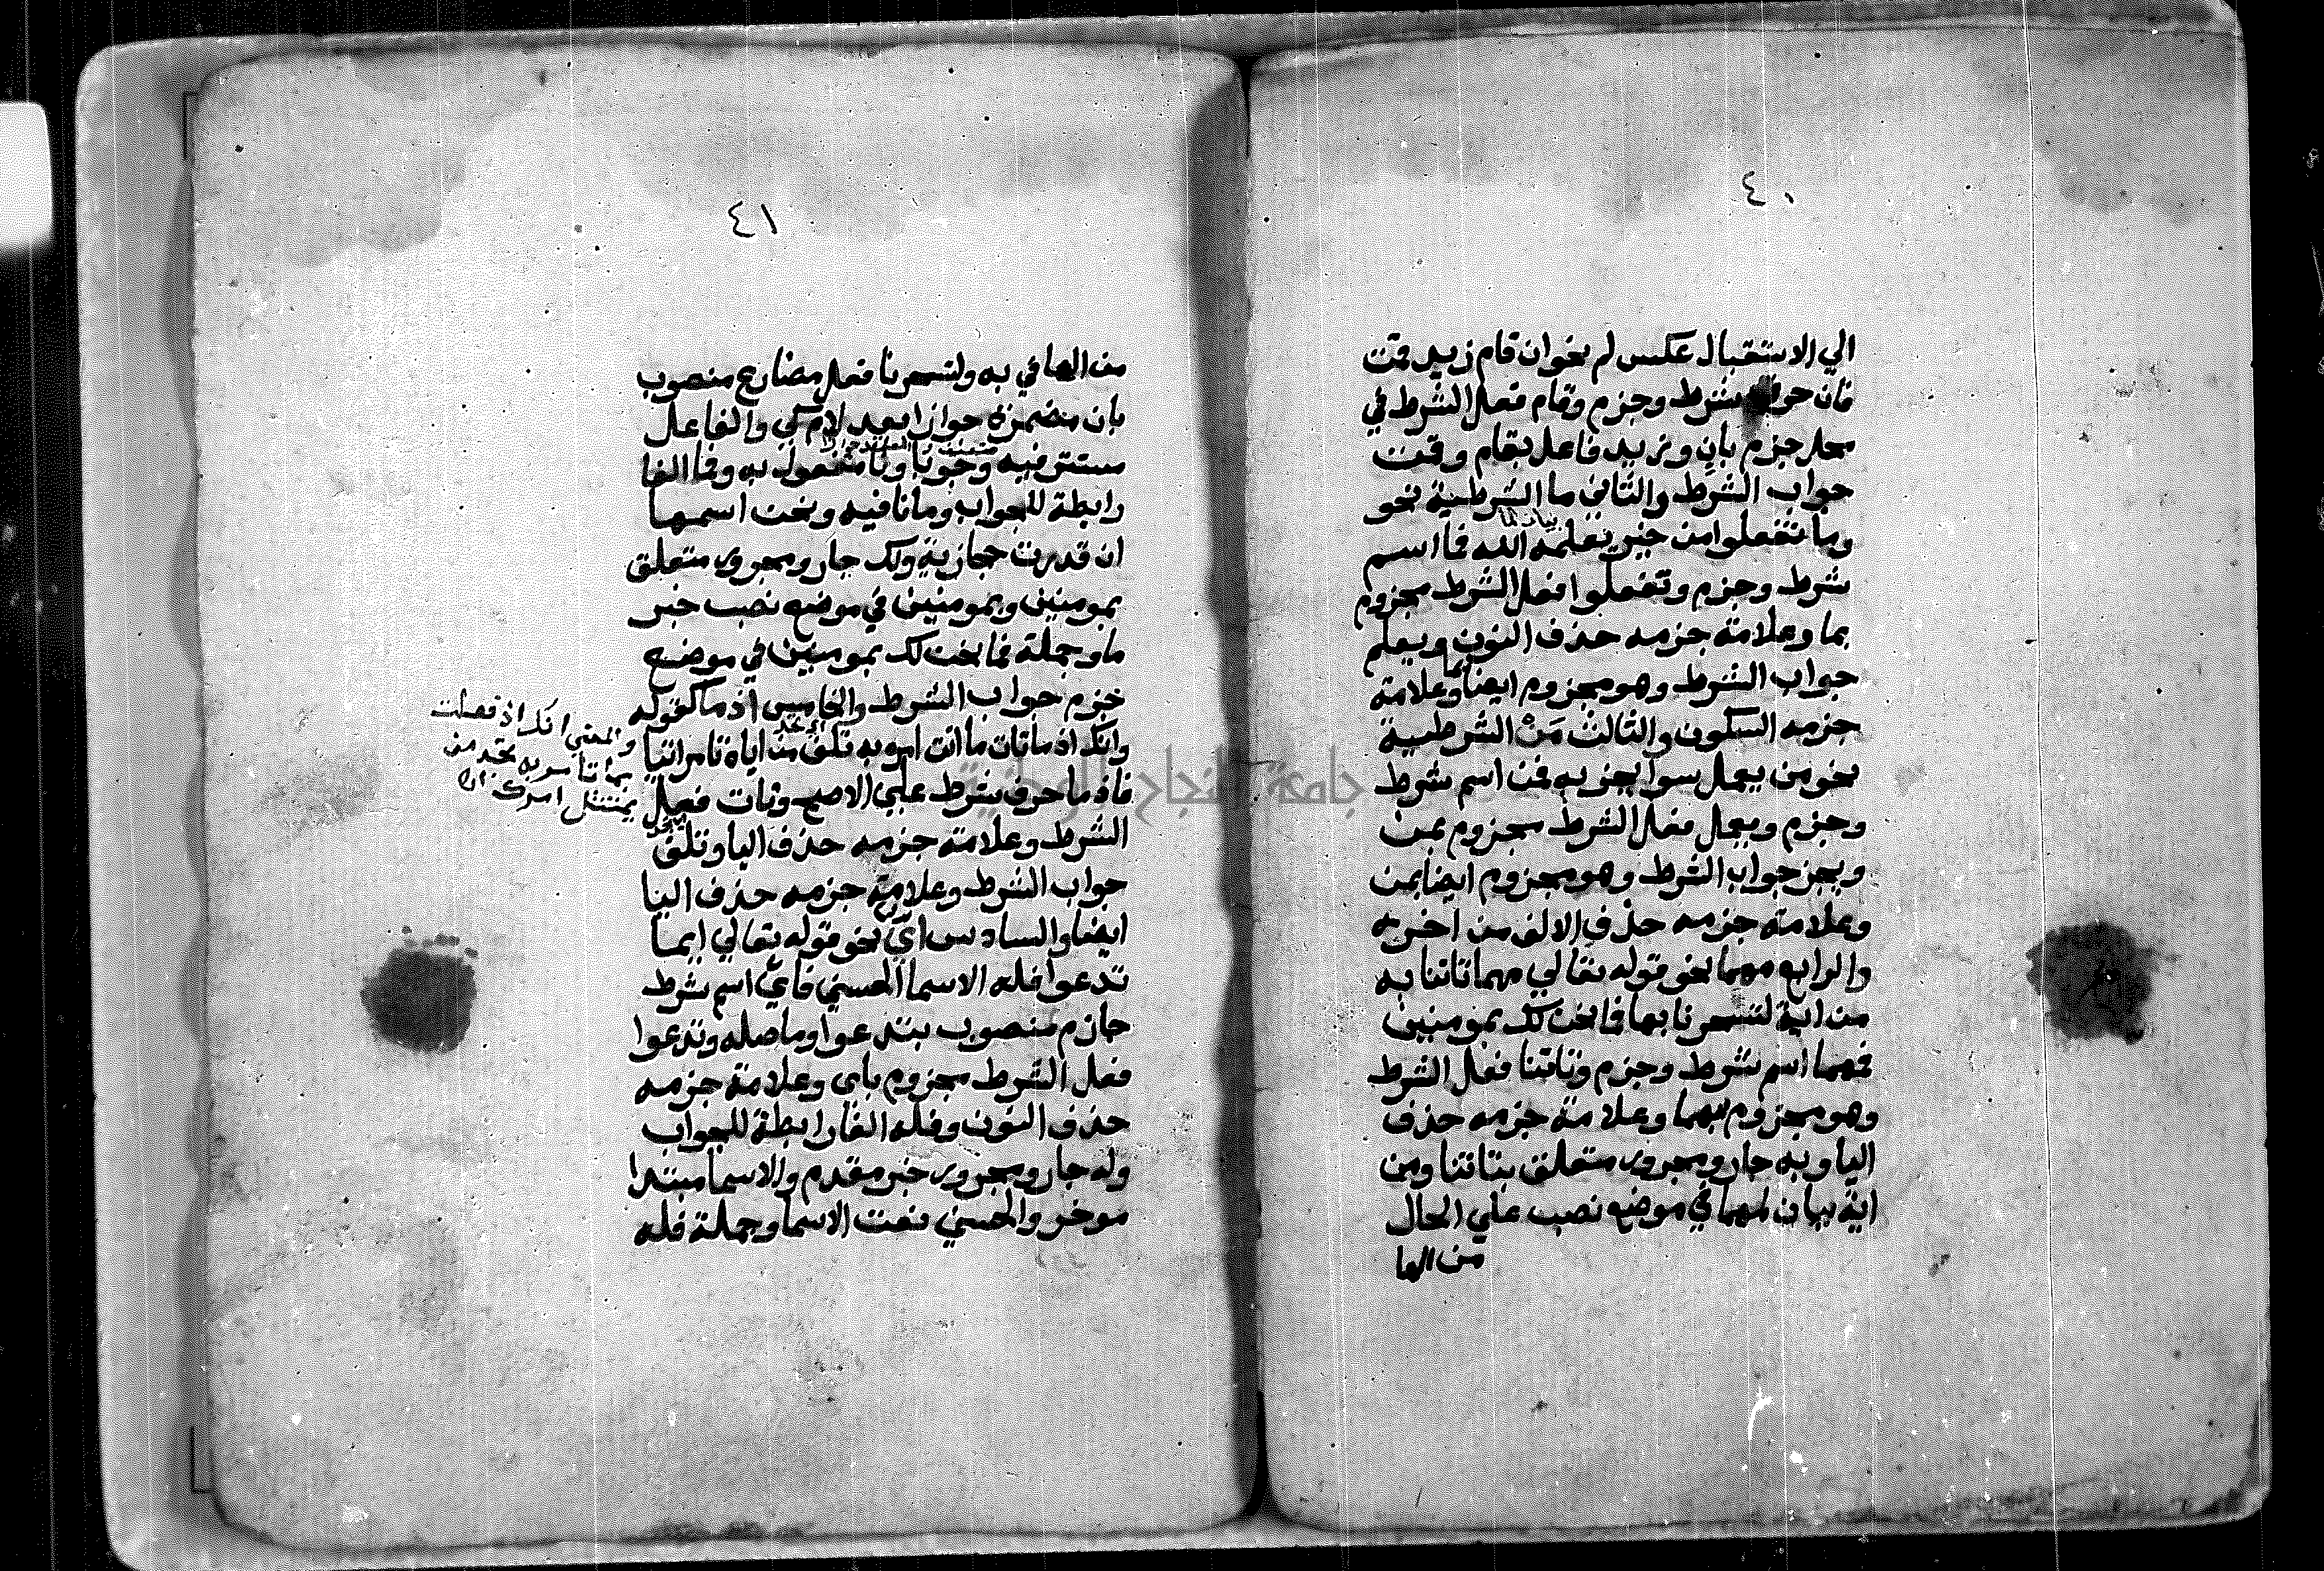 ٤٠
الي الاستقبال عكس لم نحو ان قام زيد قمت
فان حرف شرط وجزم وقام فعل الشرط في
محل جزم بان وزيد فاعل بقام وقمت
جواب الشرط والثاني ما الشرطية نحو
وما تفعلوا من خير يعلمه الله فما اسم
شرط وجزم وتفعلوا فعل الشرط مجزوم
بما وعلامة جزمه حذف النون ويعلم
جواب الشرط وهو مجزوم ايضا بما وعلامة
جزمه السكون والثالث مَنْ الشرطية
نحو من يعمل سوا يجز به فمن اسم شرط
وجزم ويعمل فعل الشرط مجزوم بمن
ويجز جواب الشرط وهو مجزوم ايضا بمن
وعلامة جزمه حذف الالف من اخره
والرابع مهما نحو قوله تعالي مهما تاتنا به
من اية لتسحرنا بها فما نحن لك بمومنين
فمهما اسم شرط وجزم وتاتنا فعل الشرط
وهو مجزوم بمهما وعلامة جزمه حذف
اليا وبه جار ومجرور متعلق بتاتنا ومن
اية بيان لمهما في موضع نصب علي الحال
من الها
٤١
من الها في به ولتسحرنا فعل مضارع منصوب
بان مضمرة جوازا بعد لام كي والفاعل
مستتر فيه وجوبا ونا مفعول به وفما الفا
رابطة للجواب وما نافيه ونحن اسمها
ان قدرت حجازية ولك جار ومجرور متعلق
بمومنين وبمومنين في موضع نصب خبر
ما وجملة فما نحن لك بمومنين في موضع
جزم جواب الشرط والخامس اذ ما كقوله
وانك اذ ما تات ما انت امر به تلف من اياه تامر اتيا
فاذ ما حرف شرط علي الاصح وتات فعل
الشرط وعلامة جزمه حذف اليا وتلف
جواب الشرط وعلامة جزمه حذف اليا
ايضا والسادس اي نحو قوله تعالي ايما
تدعوا فله الاسما الحسني فاي اسم شرط
جازم منصوب بتدعوا وما صله وتدعوا
فعل الشرط مجزوم باي وعلامة جزمه
حذف النون وفله الفا رابطة للجواب
وله جار ومجرور خبر مقدم والاسما مبتدا
موخر والحسني نعت الاسما وجملة فله
والمعني انك اذ فعلت
بما تامر به تجد من
يمتثل امرك
جامعة النجاح الوطنية